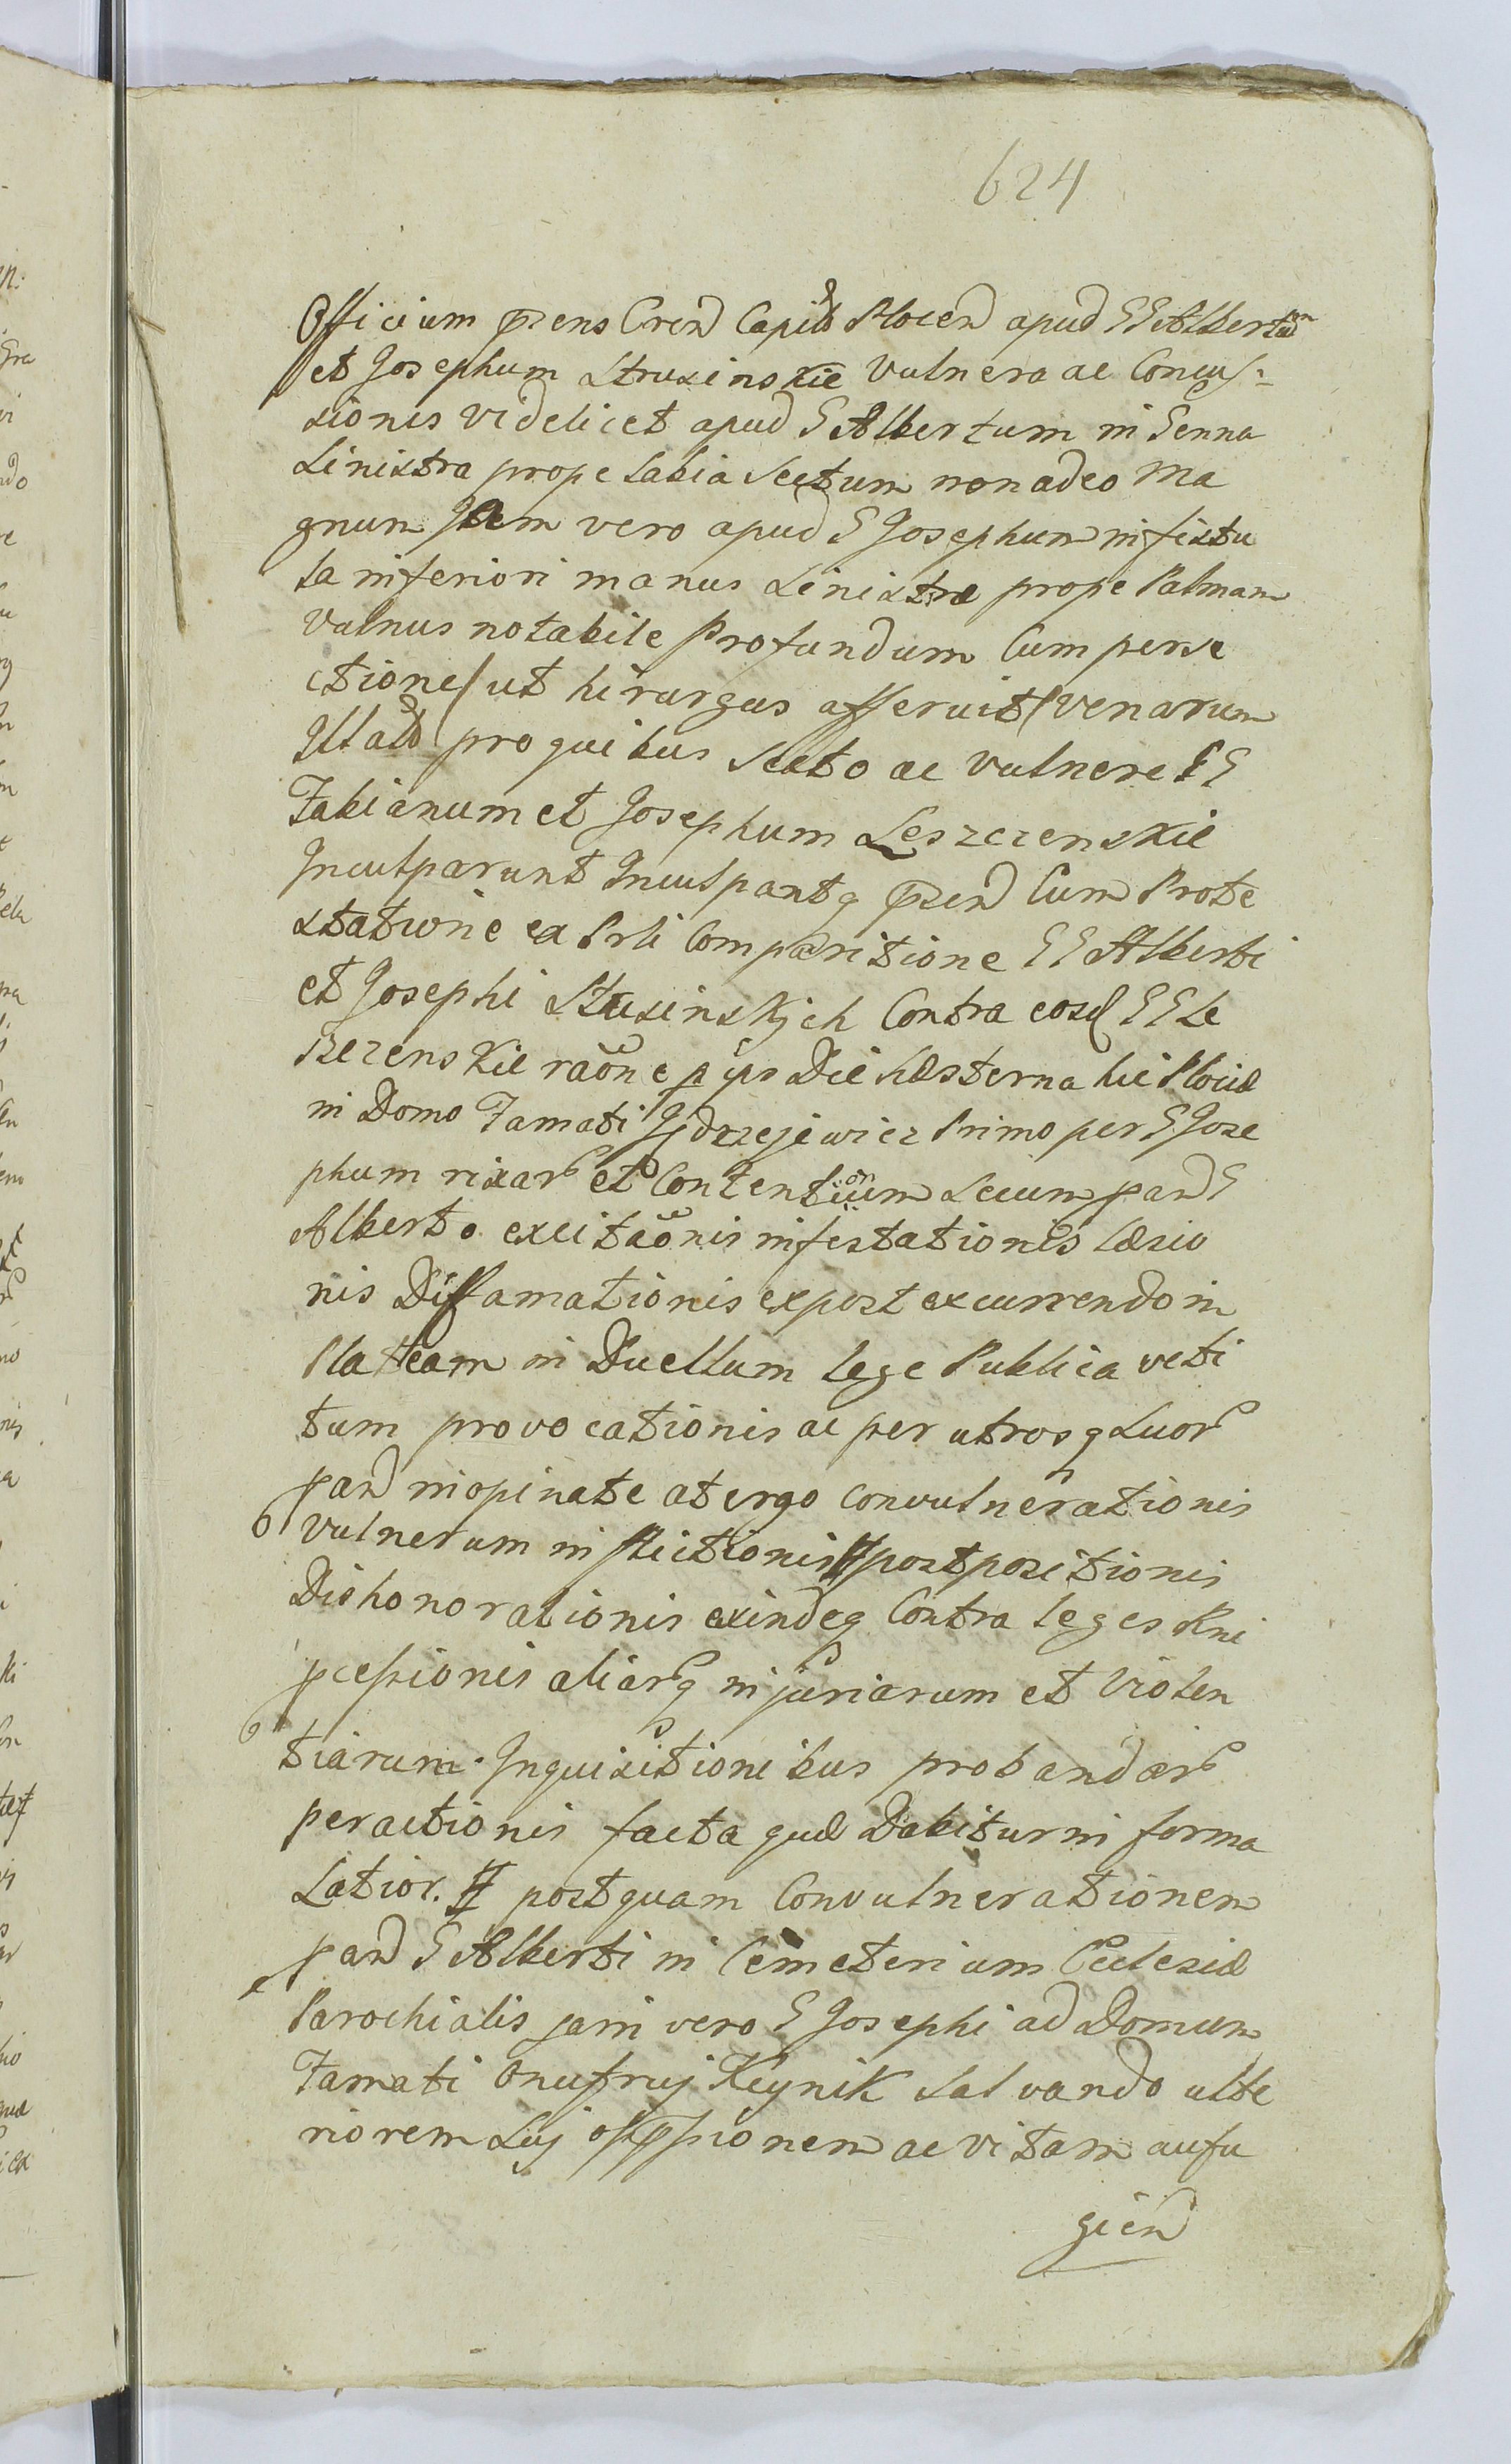 624
Officium prens Cren Capilis Plocen apud GG Albertum
et Josephum Struxinskie Vulnera ac Concus:
sionis videlicet apud G Albertum in Genna
Sinistra prope Labia Sectum non adeo Ma
gnum Item vero apud G Josephum in fistu
la inferiori manus Sinistræ prope Palmam
Vulnus notabile Profundum Cum perse
ctione (ut hirurgus asseruit) venarum
Illatis pro quibus Secto ac Vulnere GG
Fabianum et Josephum Leszczenskie
Inculparunt Inculpantq prsen Cum Prote
statione ex Prli Comparitione GG Alberti
et Josephi Struxinskich Contra eosd GG Le
szczenskie raone p ips Die hæsterna hic Plociæ
in Domo Famati Jędrzejewicz Primo per G Jose
phum rixar et Contentionum Secum pan G
Alberto excitaonis infestationis læsio
nis Diffamationis expost excurrendo in
Plateam in Duellum lege Publica veti
tum provocationis ac per utrosq Suor
pan inopinate a tergo convulnerationis
Vulnerum inflictionis # postpositionis
Dishonorationis exindeq Contra leges Rni
pcessionis aliarq injuriarum et Violen
tiarum Inquisitionibus probandar
peractionis facta quæ Dabitur in forma
Latior. # postquam Convulnerationem
pan G Alberti in Cemeterium Ecclesiæ
Parochialis jam vero G Josephi ad Domum
Famati Onufrij Keynik Salvando ulte
riorem Sui oppssionem ac vitam aufu
gien